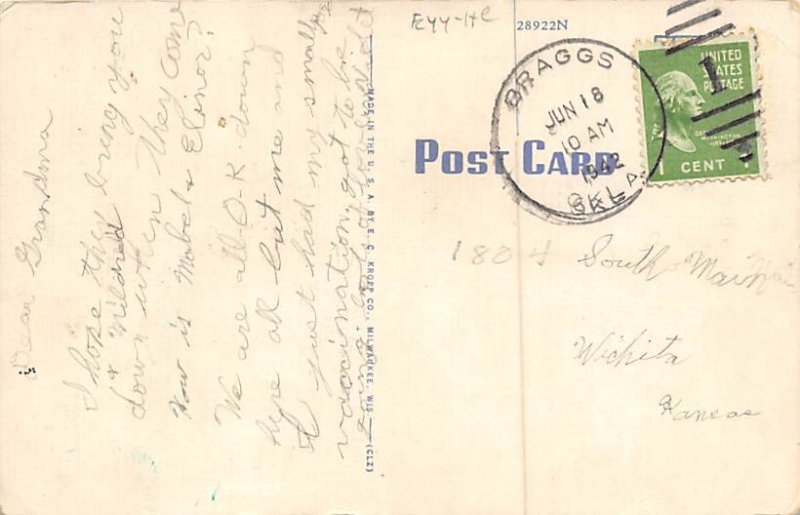 Dear Grandma
I hope they bring you
& Mildred
down when they come
How is Mabel & Elinor?
We are all O-K down
here all but me and
I just had my small
vaccination, got to be
MADE IN THE U. S. A. BY E. C. KROPP CO., MILWAUKEE, WIS. (CLZ)
EYY-HC
28922N
POST CARD
BRAGGS
JUN 18
10 AM
1942
OKLA.
1
UNITED
STATES
POSTAGE
WASHINGTON
1 CENT
1804 South Main
Wichita
Kansas